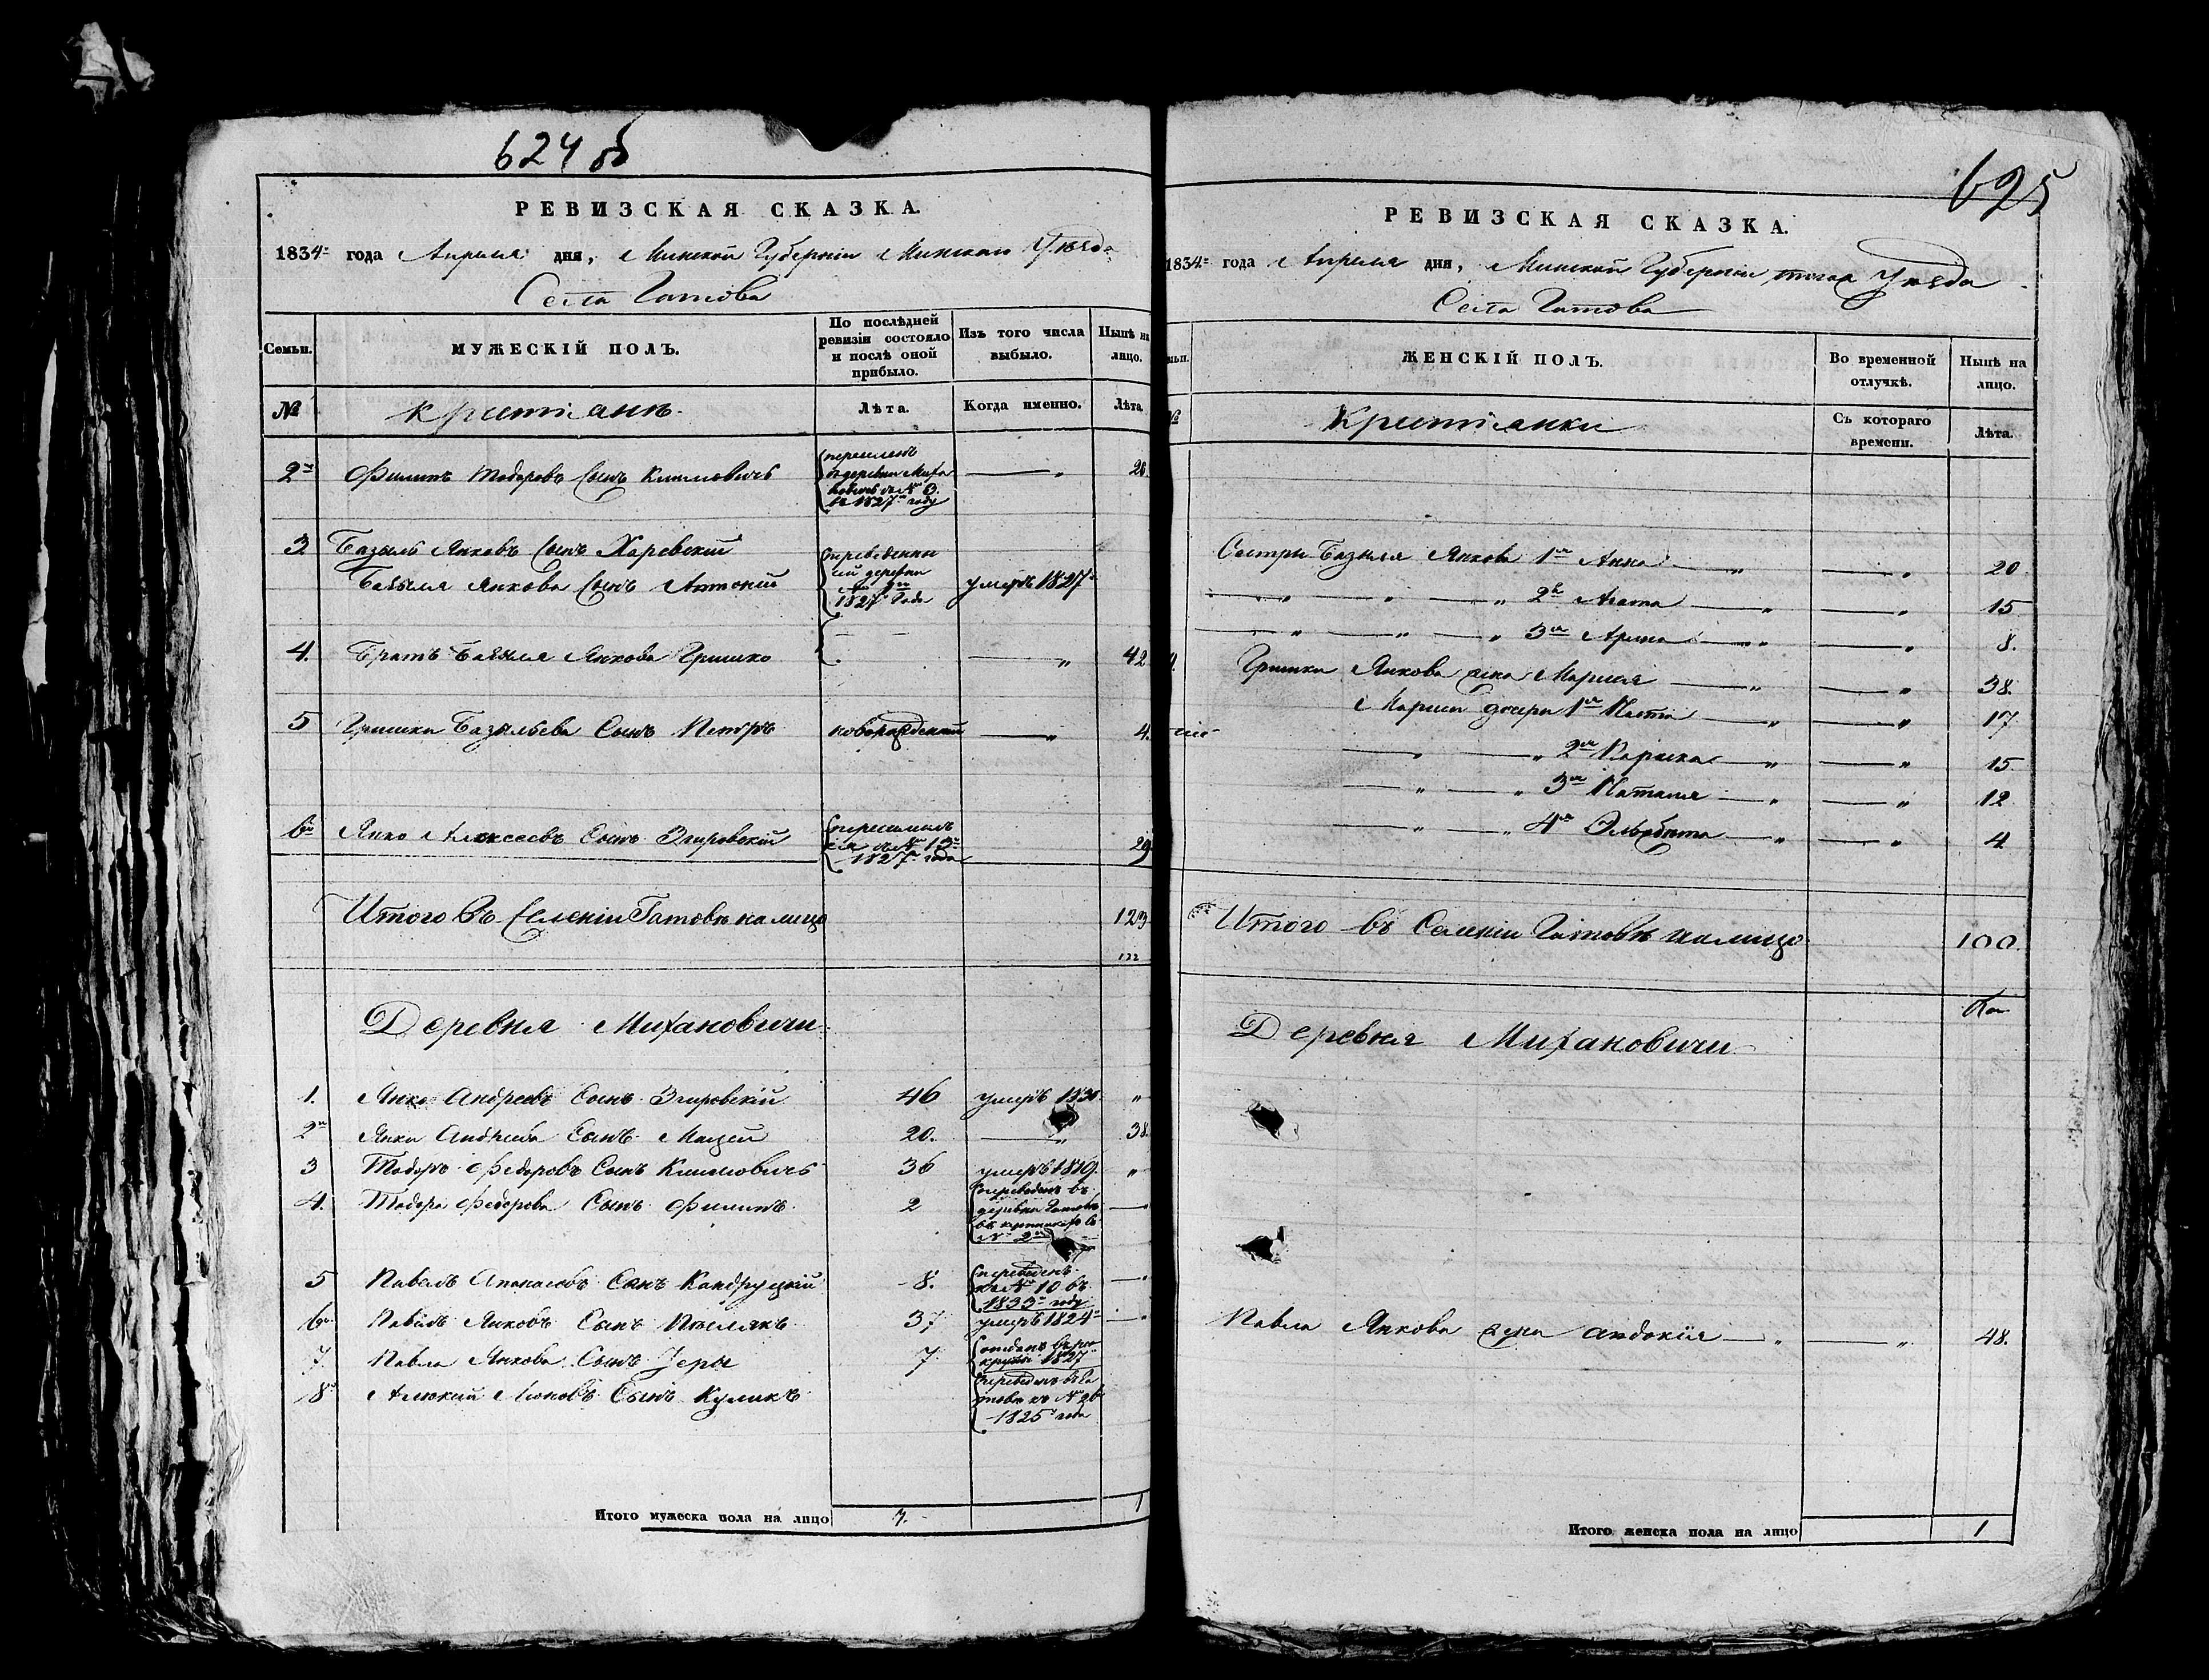 624 об
РЕВИЗСКАЯ СКАЗКА.
1834 года Апреля дня, Минской Губерніи Минскаго Уезда
Села Гатова
Семьи.
МУЖЕСКІЙ ПОЛЪ.
По послѣдней ревизіи состояло и послѣ оной прибыло.
Изъ того числа выбыло.
Нынѣ на лицо.
№
Крестьянъ.
Лѣта.
Когда именно.
Лѣта.
2 Филипъ Тодоровъ Сынъ Климовичъ
въ 1827 году
— 26.
3 Базыль Янковъ Сынъ Харевскій
Базыля Янкова Сынъ Антоній
1827 года
умеръ 1827
4. Братъ Базыля Янкова Гришко — 42
5 Гришки Базыльева Сынъ Петръ новорожденный — 4.
6 Янко Алексеевъ Сынъ Згировскій
1827 года
29
Итого въ Селеніи Гатовѣ на лицо 123
122
Деревня Михановичи
1. Янко Андреевъ Сынъ Згировскій 46 умеръ 1830 "
2 Янки Андреева Сынъ Мацей 20. — 38.
3 Тодоръ Федоровъ Сынъ Климовичъ 36 умеръ 1819. "
4. Тодора Федорова Сынъ Филипъ 2
переведенъ въ
№ 2
5 Павелъ Апанасовъ Сынъ Кандруцкій 8.
переведенъ
къ № 10 въ
1833 году
6 Павелъ Янковъ Сынъ 37 умеръ 1824
7. Павла Янкова Сынъ 7
1827
8 Сынъ Куликъ
1825 года
Итого мужеска пола на лицо 7. 1
625
РЕВИЗСКАЯ СКАЗКА.
1834 года Апреля дня, Минской Губерніи того Уезда
Села Гатова
ЖЕНСКІЙ ПОЛЪ.
Во временной отлучкѣ.
Нынѣ на лицо.
№
Крестьянки
Съ котораго времени.
Лѣта.
Сестры Базыля Янкова 1я Анна — 20
2я Агата — 15
3я — 8.
Гришки Янкова жена Марыя — 38.
Марыи дочери 1я — 17
2я — 15
3я Наталя — 12
4я Эльжбета — 4
Итого въ Селеніи Гатовѣ на лицо 100.
Деревня Михановичи
Павла Янкова жена Авдокія — 48.
Итого женска пола на лицо 1